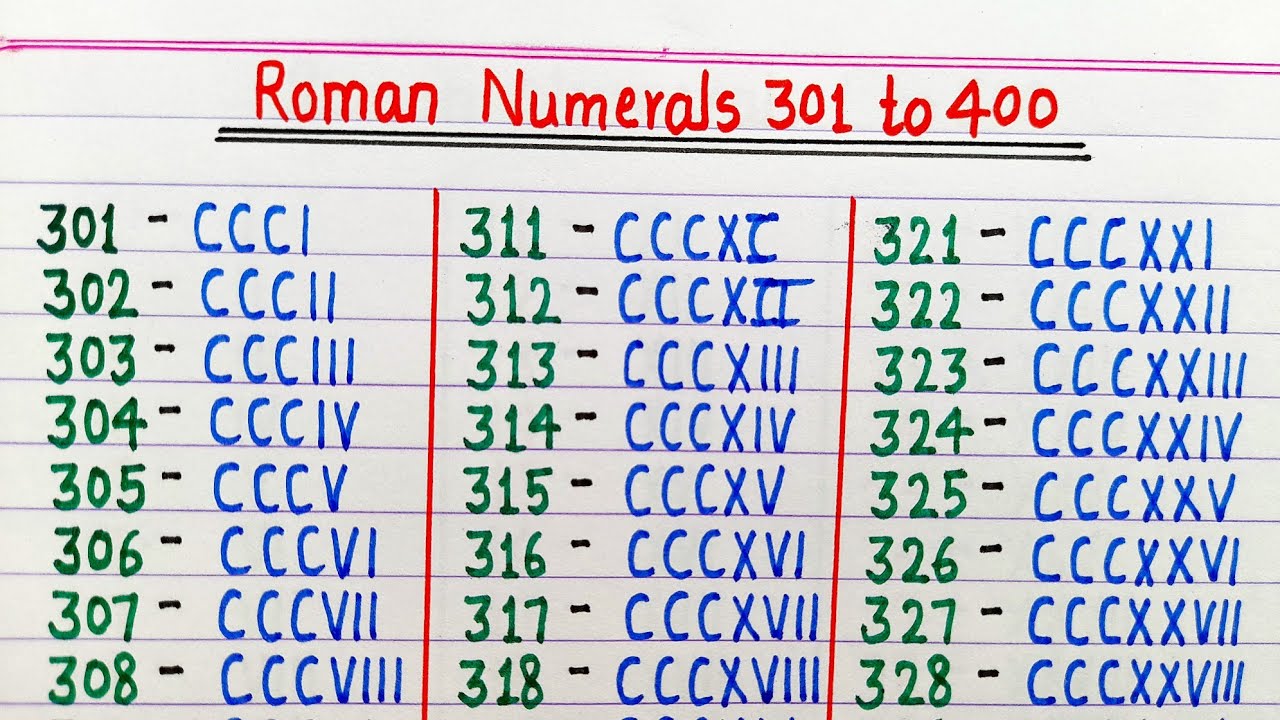 Roman Numerals 301 to 400
301 - CCCI
302 - CCCII
303 - CCCIII
304 - CCCIV
305 - CCCV
306 - CCCVI
307 - CCCVII
308 - CCCVIII
311 - CCCXI
312 - CCCXII
313 - CCCXIII
314 - CCCXIV
315 - CCCXV
316 - CCCXVI
317 - CCCXVII
318 - CCCXVIII
321 - CCCXXI
322 - CCCXXII
323 - CCCXXIII
324 - CCCXXIV
325 - CCCXXV
326 - CCCXXVI
327 - CCCXXVII
328 - CCCXXVIII